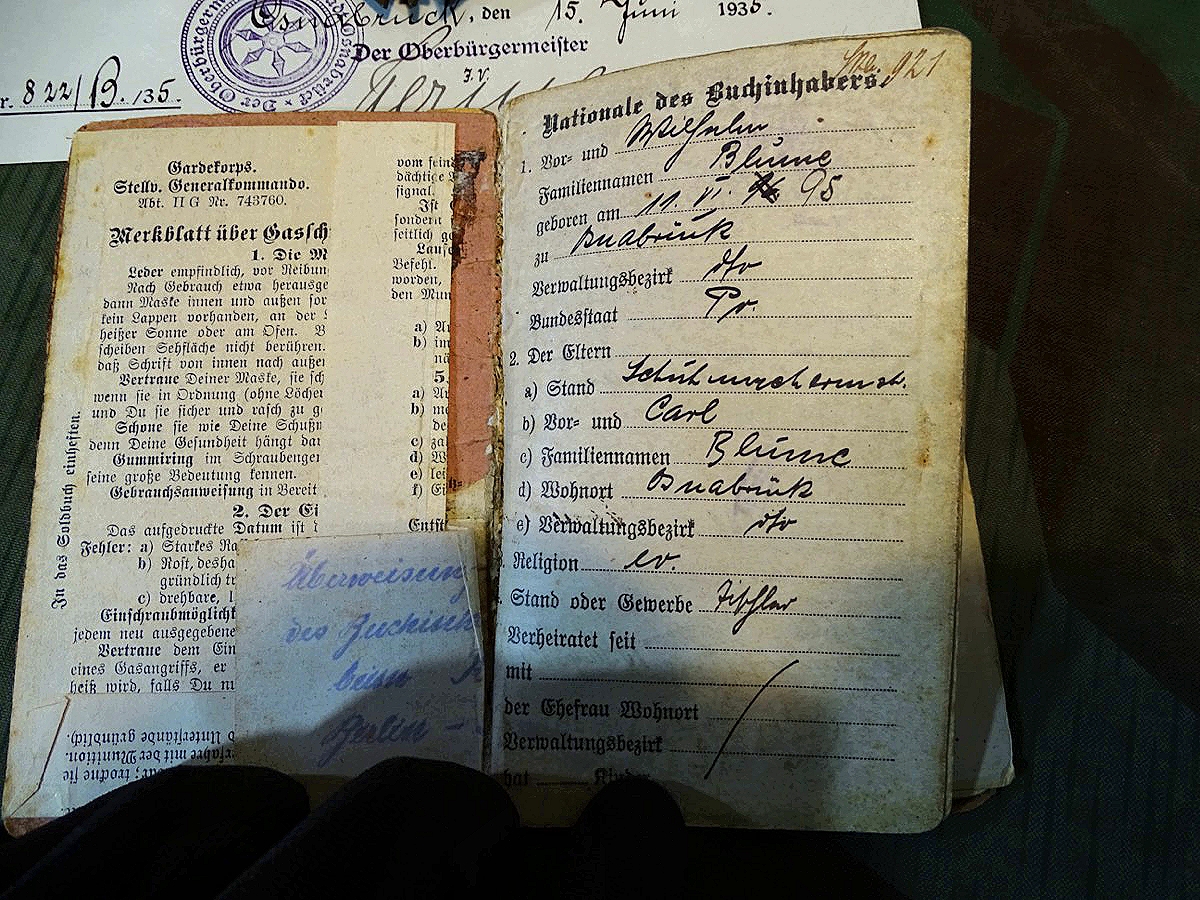 Osnabrück, den 15. Juni 1935.
Der Oberbürgermeister
I.V.
r. 822/B. 135.
Der Oberbürgermei
Osnabrück
Gardekorps.
Stellv. Generalkommando.
Abt. II G Nr. 743760.
Merkblatt über Gassch
1. Die M
Leder empfindlich, vor Reibun
Nach Gebrauch etwa herausge
dann Maske innen und außen for
kein Lappen vorhanden, an der
heißer Sonne oder am Ofen. B
scheiben Sehfläche nicht berühren.
daß Schrift von innen nach außen
Vertraue Deiner Maske, sie sch
wenn sie in Ordnung (ohne Löcher
und Du sie sicher und rasch zu g
Schone sie wie Deine Schußw
denn Deine Gesundheit hängt dar
Gummiring im Schraubenger
seine große Bedeutung kennen.
Gebrauchsanweisung in Bereit
2. Der Ei
Das aufgedruckte Datum ist d
Fehler: a) Starkes Ra
b) Rost, desha
gründlich tr
c) drehbare, l
Einschraubmöglichk
jedem neu ausgegebene
Vertraue dem Ein
eines Gasangriffs, er
heiß wird, falls Du nu
In das Soldbuch einheften.
vom feind
dächtige
signal.
Ist
sondern
seitlich ge
Lauf
Befehl.
worden,
den Mun
a) An
b) im
nä
5.
a) An
b) me
de
c) za
d) W
e) lei
f) Ei
Entst
d Unterstände gründlich).
erfahre mit der Munition.
trockne sie
Überweisung
des Buchinh
beim
Berlin -
921
Nationale des Buchinhabers.
1. Vor- und Wilhelm
Familiennamen Blume
geboren am 11. VI. 95
zu Osnabrück
Verwaltungsbezirk dto
Bundesstaat Pr.
2. Der Eltern
a) Stand Schuhmachermst.
b) Vor- und Carl
c) Familiennamen Blume
d) Wohnort Osnabrück
e) Verwaltungsbezirk dto
Religion ev.
Stand oder Gewerbe Tischler
Verheiratet seit
mit
der Ehefrau Wohnort
Verwaltungsbezirk
hat Kinder